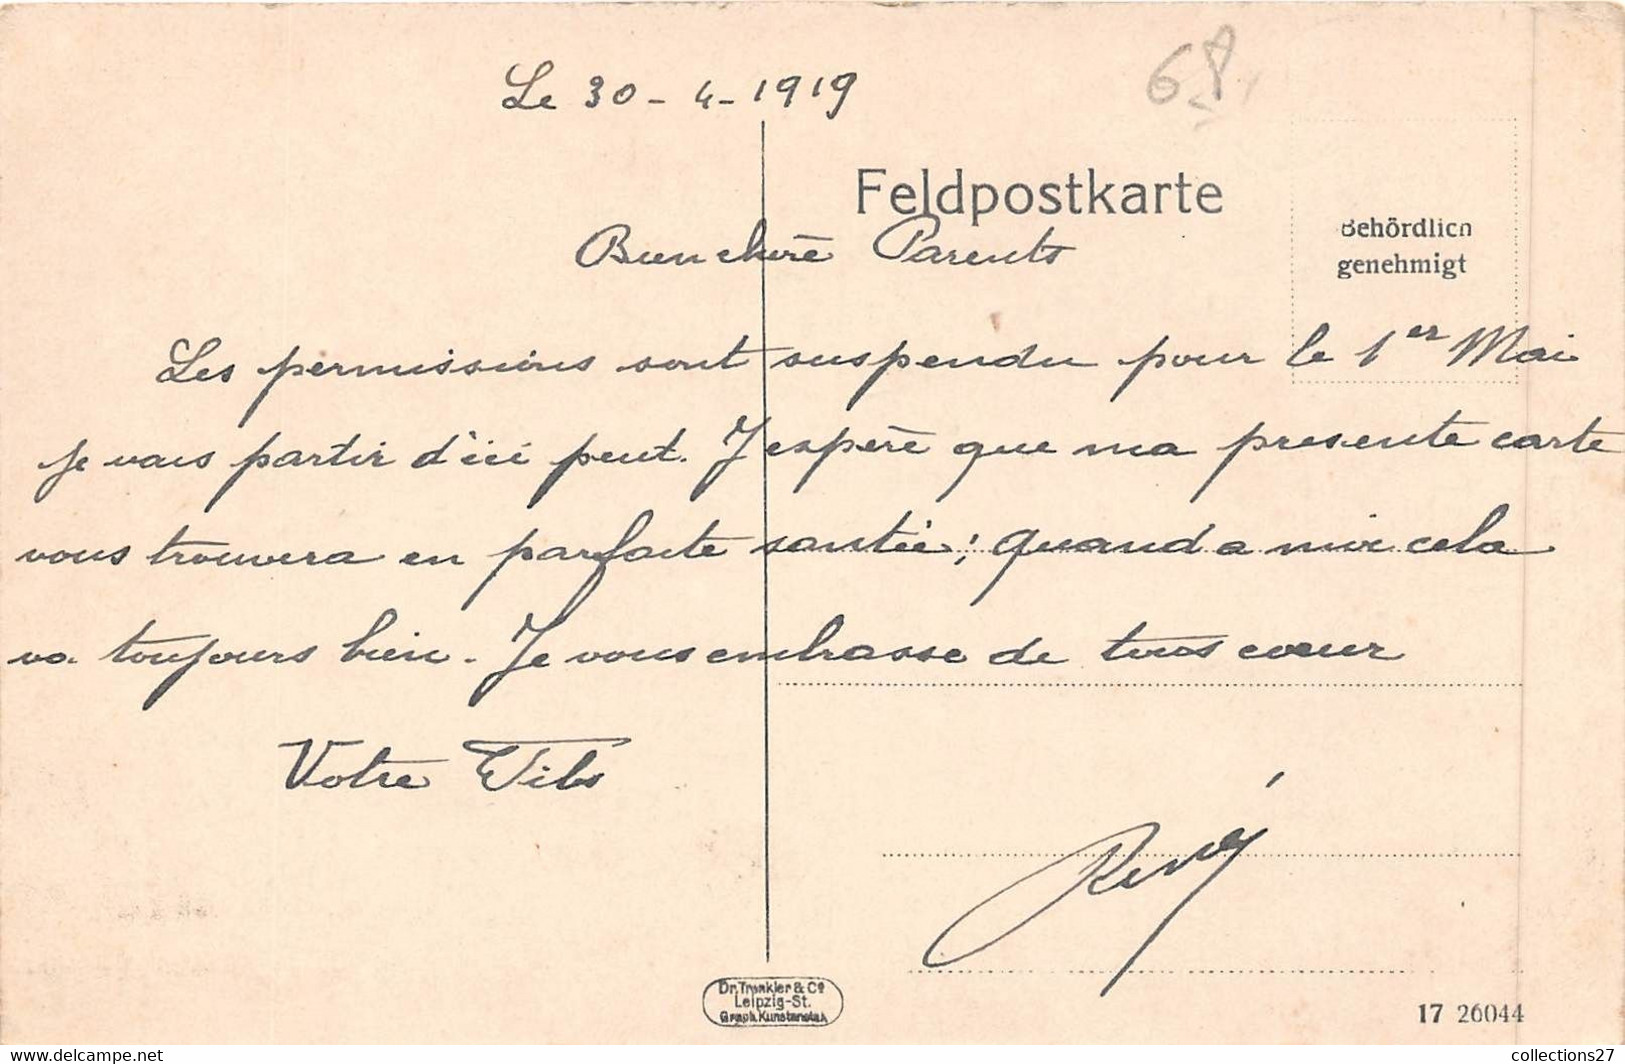 Le 30 - 4 - 1919
68
Feldpostkarte
Behördlich
genehmigt
Bien chère Parents
Les permissions sont suspendu pour le 1er Mai
je vais partir d'ici peut. J'espère que ma presente carte
vous trouvera en parfaite santée; quand a moi cela
va toujours bien. Je vous embrasse de tous cœur
Votre Fils
René
Dr. Trenkler & Co
Leipzig-St.
Graph. Kunstanstalt
17 26044
collections27